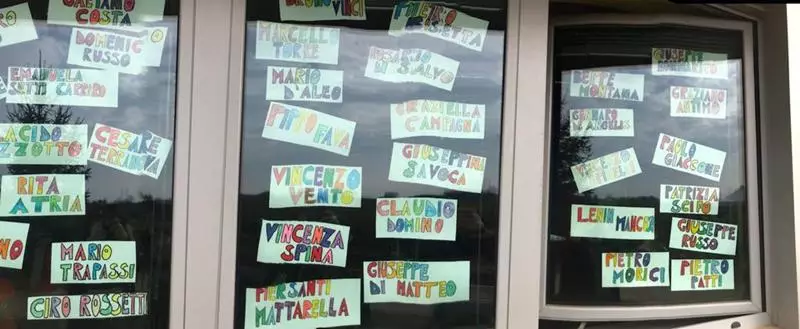 GAETANO
COSTA
DOMENICO
RUSSO
EMANUELA
SETTI CARRARO
PLACIDO
RIZZOTTO
CESARE
TERRANOVA
RITA
ATRIA
MARIO
TRAPASSI
CIRO ROSSETTI
BRUNO VINCI
PIETRO
MARCELLO
TORRE
ROSARIO
DI SALVO
MARIO
D'ALEO
GRAZIELLA
CAMPAGNA
PIPPO FAVA
GIUSEPPINA
SAVOCA
VINCENZO
VENTO
CLAUDIO
DOMINO
VINCENZA
SPINA
PIERSANTI
MATTARELLA
GIUSEPPE
DI MATTEO
GIUSEPPE
BEPPE
MONTANA
GRAZIANO
ANTIMO
GENNARO
DE ANGELIS
PAOLO
GIACCONE
PATRIZIA
SCIFO
LENIN MANCUSO
GIUSEPPE
RUSSO
PIETRO
MORICI
PIETRO
PATTI